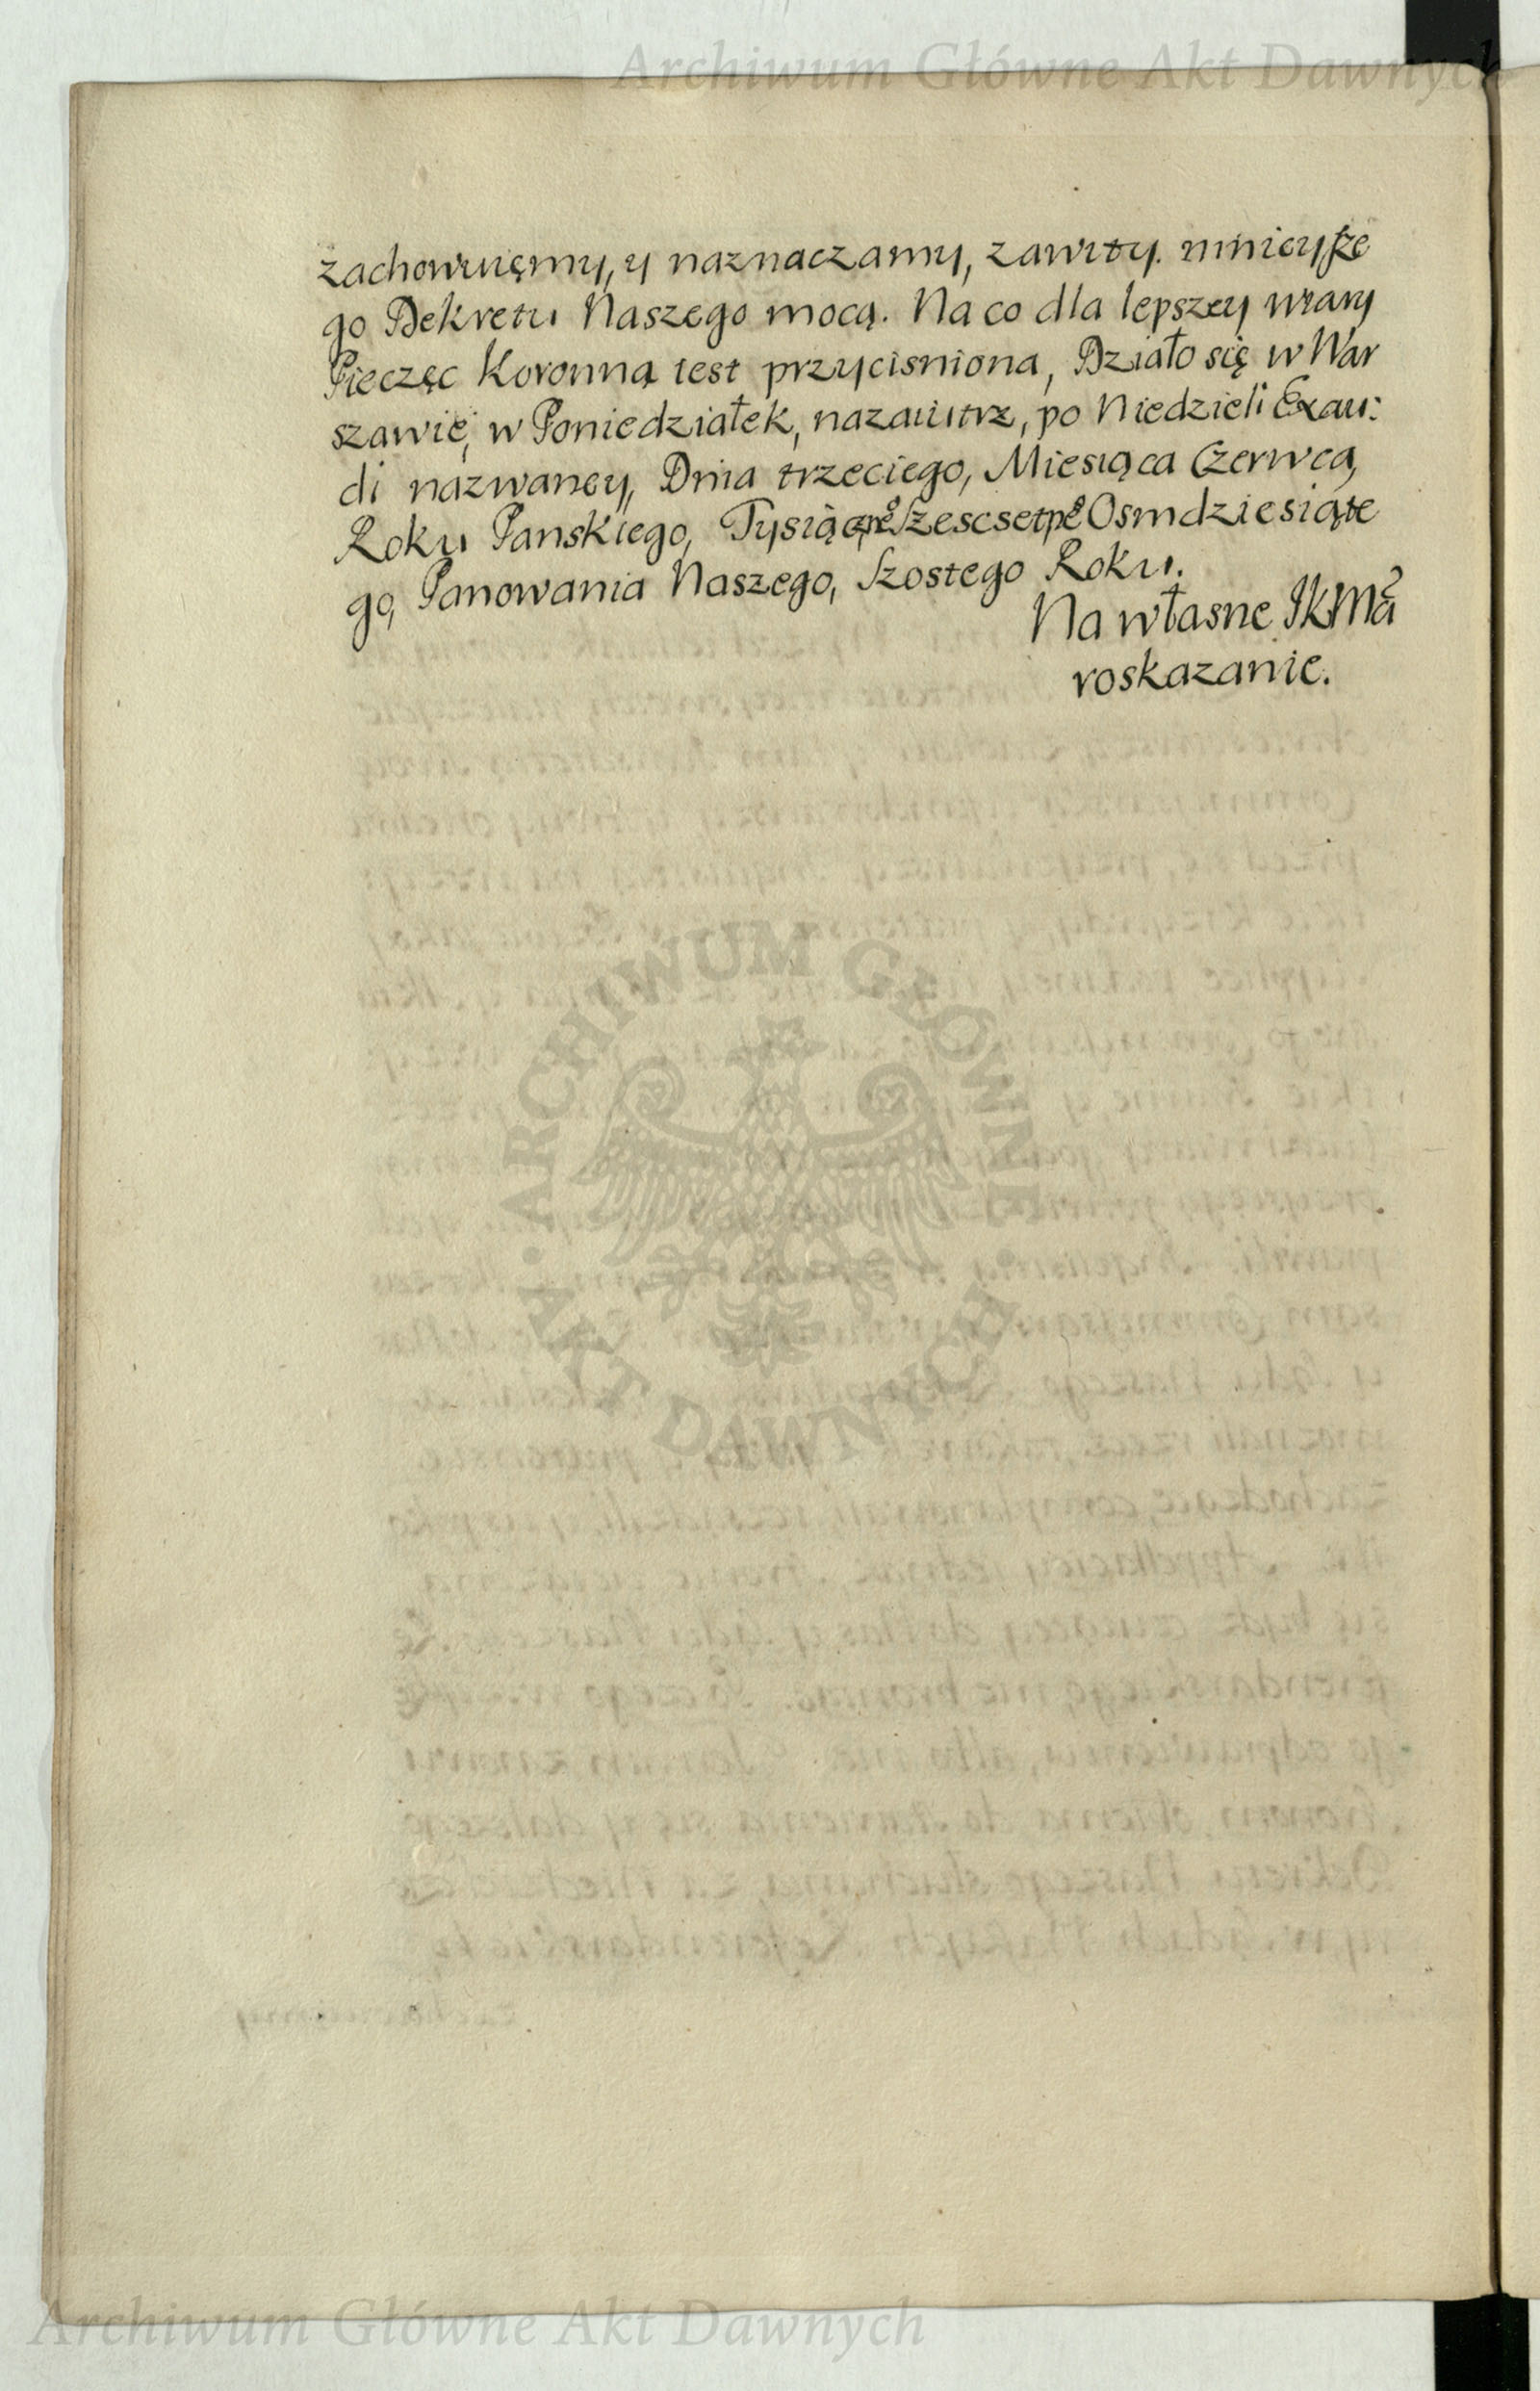 Archiwum Główne Akt Dawnych
zachowuięmy, y naznaczamy, zawity. mnieysze
go Dekretu Naszego mocą. Na co dla lepszey wiary
Pieczęc Koronna iest przycisniona, Działo się w War
szawie, w Poniedziałek, nazaiutrz, po Niedzieli Exau:
di nazwaney, Dnia trzeciego, Miesiąca Czerwca,
Roku Panskiego, Szescset Osmdziesiąte
go, Panowania Naszego, Szostego Roku.
Na własne JKMći
roskazanie.
ARCHIWUM GŁÓWNE
AKT DAWNYCH
Archiwum Główne Akt Dawnych